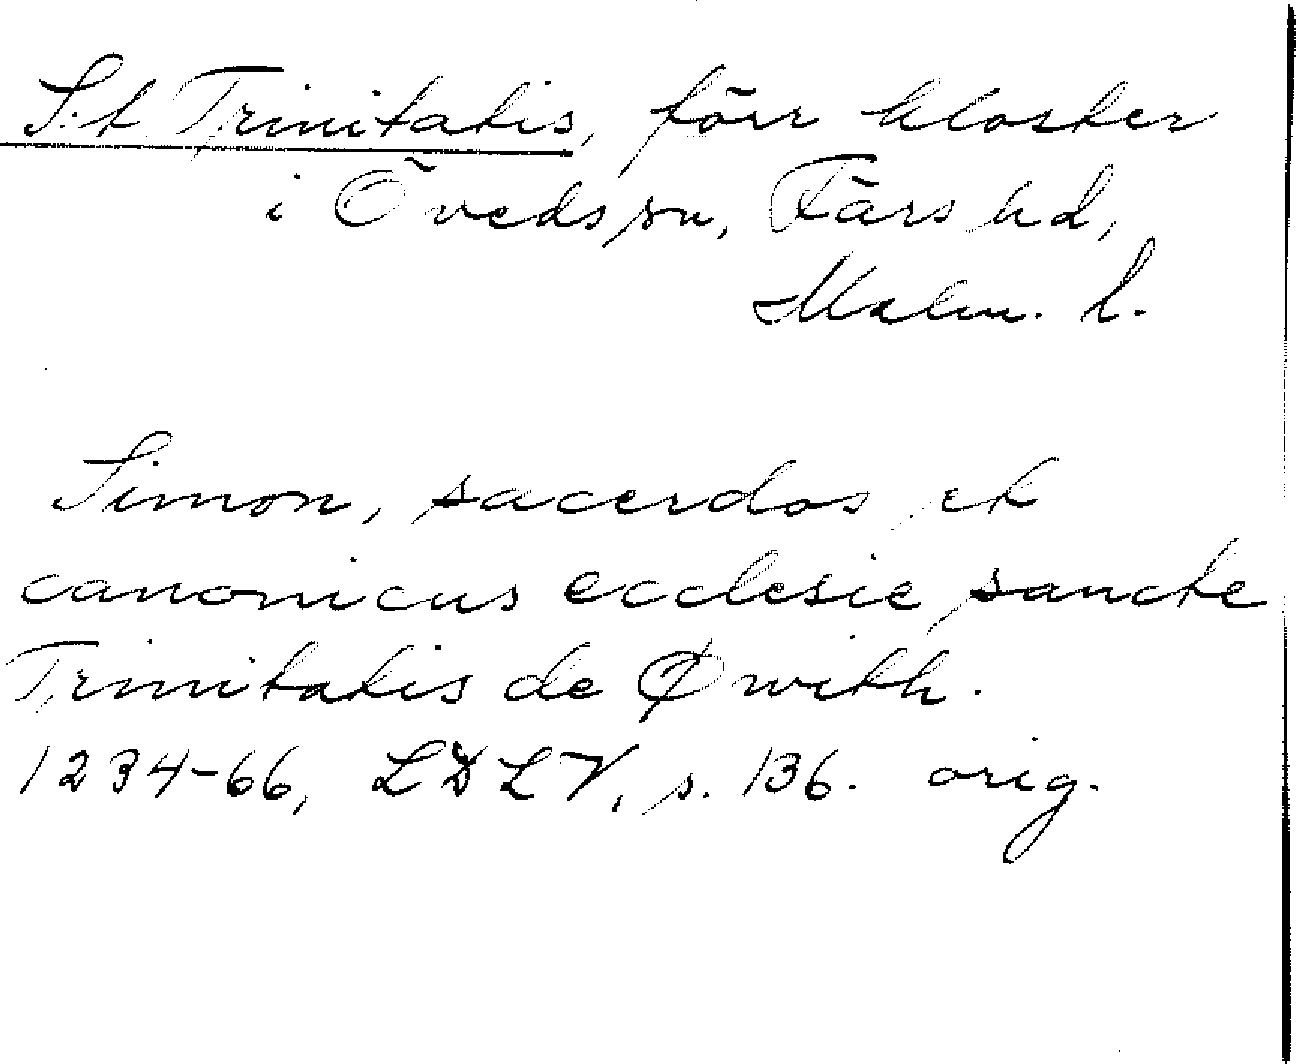 S:t Trinitatis, förr kloster
i Öveds sn, Färs hd,
Malm. l.
Simon, sacerdos et
canonicus ecclesie sancte
Trinitatis de Øwith.
1234-66, LDLV, s. 136. orig.